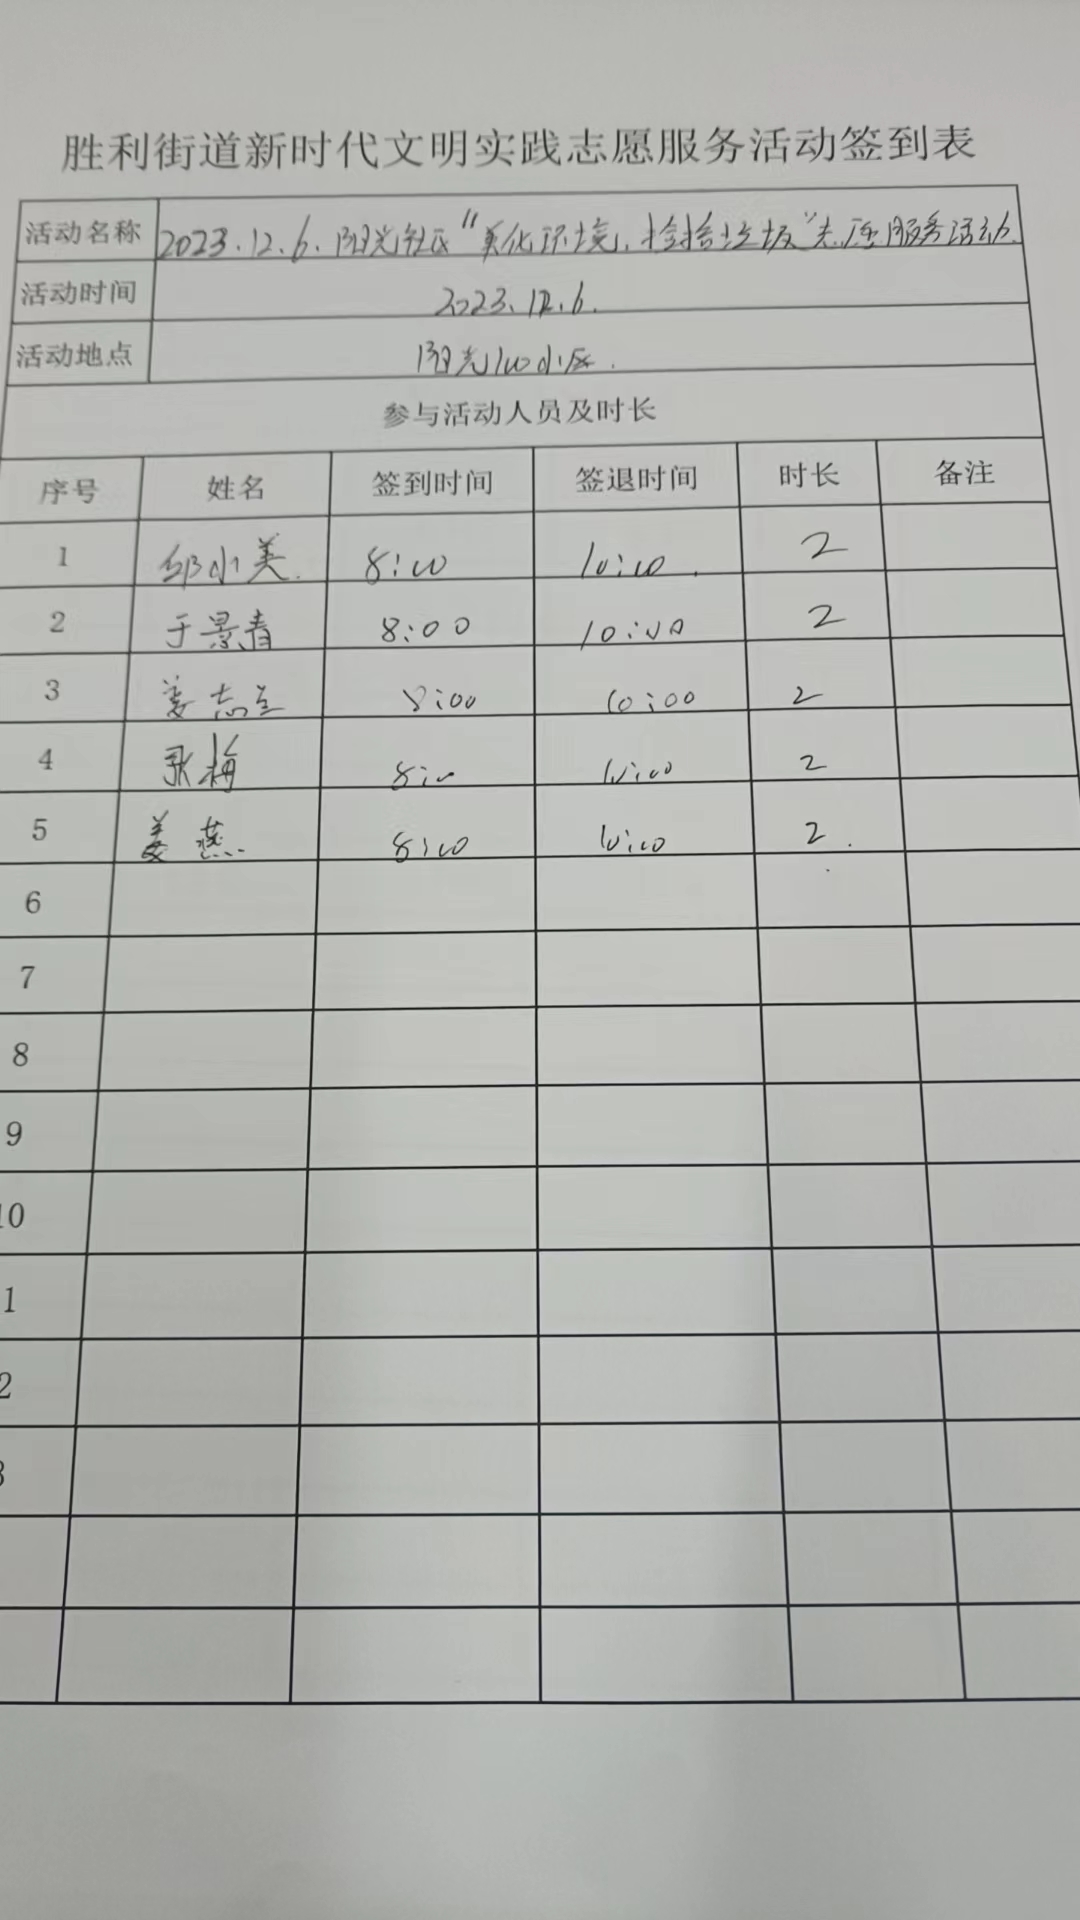 胜利街道新时代文明实践志愿服务活动签到表
活动名称 2023.12.6.阳光社区"美化环境,捡拾垃圾"志愿服务活动.
活动时间 2023.12.6.
活动地点 阳光100小区.
参与活动人员及时长
序号 姓名 签到时间 签退时间 时长 备注
1 邹小美. 8:00 10:00. 2
2 于景青 8:00 10:00 2
3 姜志 8:00 10:00 2
4 张梅 8:00 10:00 2
5 姜燕. 8:00 10:00 2.
6
7
8
9
10
1
2
3